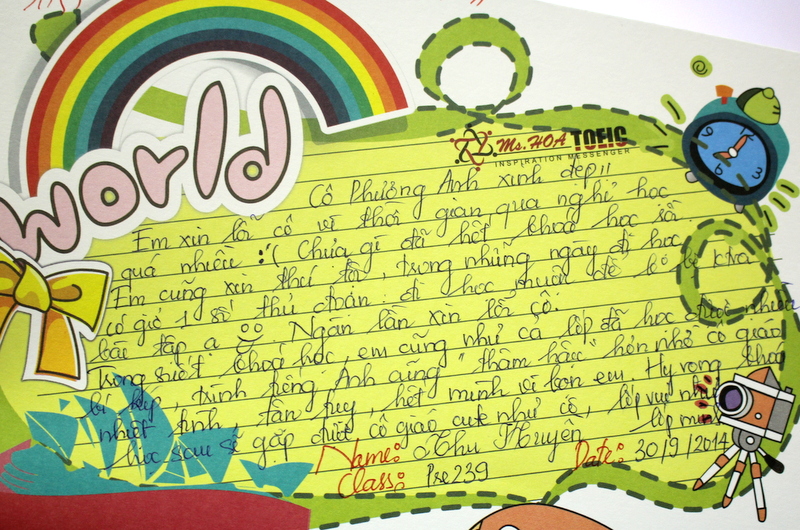 world
Ms. HOA TOEIC
INSPIRATION MESSENGER
Cô Phương Anh xinh đẹp!!
Em xin lỗi cô vì thời gian qua nghỉ học
quá nhiều :'( Chưa gì đã hết khoá học rồi.
Em cũng xin thú tội, trong những ngày đi học
có giở 1 số thủ đoạn: đi học muộn để bị ktra
bài tập ạ. Ngàn lần xin lỗi cô.
Trong suốt khoá học, em cũng như cả lớp đã học được nhiều
bí kíp, trình tiếng Anh cũng "thâm hậu" hơn nhờ cô giáo
nhiệt tình, tận tuỵ, hết mình vì bọn em. Hy vọng khoá
học sau sẽ gặp được cô giáo cute như cô, lớp vui như
lớp mình
Name: Thu Huyền Date: 30/9/2014
Class: Pre239